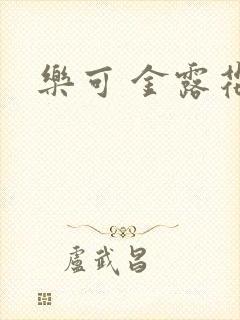 樂可 金露
盧武昌